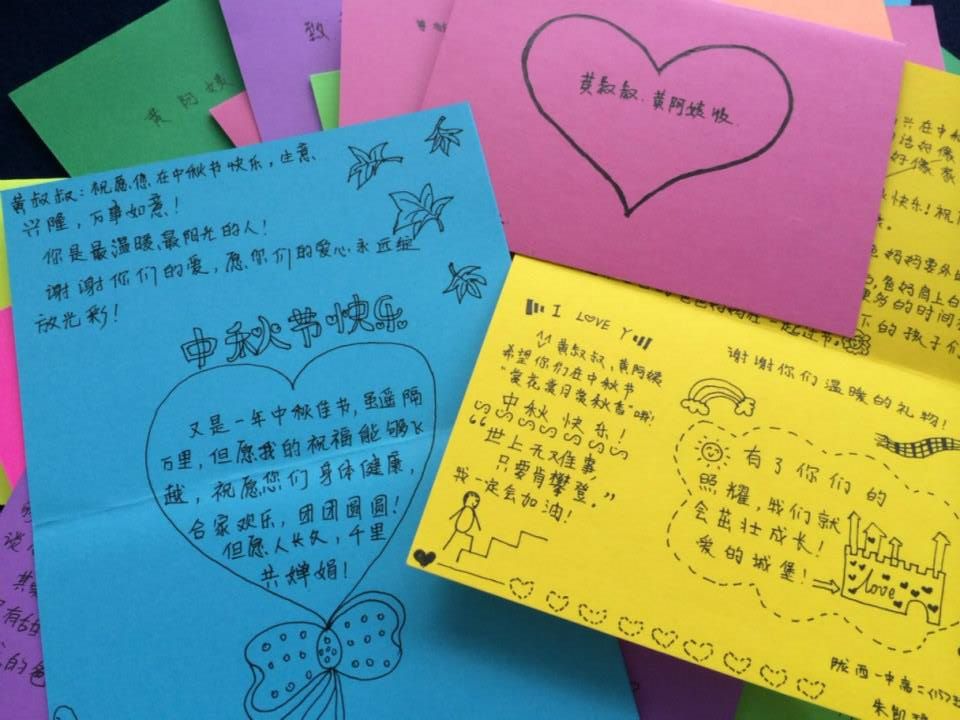 黄阿姨
致
黄叔叔.黄阿姨收
黄叔叔：祝愿您在中秋节快乐，生意
兴隆，万事如意！
你是最温暖最阳光的人！
谢谢你们的爱，愿你们的爱心永远绽
放光彩！
中秋节快乐
又是一年中秋佳节，虽遥隔
万里，但愿我的祝福能够飞
越，祝愿您们身体健康，
合家欢乐，团团圆圆！
但愿人长久，千里
共婵娟！
I LOVE Y
黄叔叔，黄阿姨
希望你们在中秋节
"赏花赏月赏秋香"哦！
中秋快乐！
"世上无难事，
只要肯攀登。"
我一定会加油！
谢谢你们温暖的礼物！
有了你们的
照耀，我们就
会茁壮成长！
爱的城堡！
love
陇西一中高二(15)班
朱凯
兴在中秋
好像家
快乐！祝
爸妈肩上白
更多的时间
一起过节。
下的孩子们
的爸